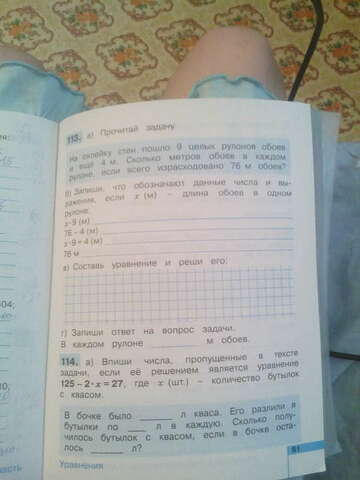 113. а) Прочитай задачу
На оклейку стен пошло 9 целых рулонов обоев
и ещё 4 м. Сколько метров обоев в каждом
рулоне, если всего израсходовано 76 м обоев?
б) Запиши, что обозначают данные числа и вы-
ражения, если x (м) – длина обоев в одном
рулоне:
x·9 (м)
76 – 4 (м)
x·9 + 4 (м)
76 м
в) Составь уравнение и реши его:
г) Запиши ответ на вопрос задачи.
В каждом рулоне ________ м обоев.
114. а) Впиши числа, пропущенные в тексте
задачи, если её решением является уравнение
125 – 2·x = 27, где x (шт.) – количество бутылок
с квасом.
В бочке было ______ л кваса. Его разлили в
бутылки по ___ л в каждую. Сколько полу-
чилось бутылок с квасом, если в бочке оста-
лось ______ л?
Уравнения